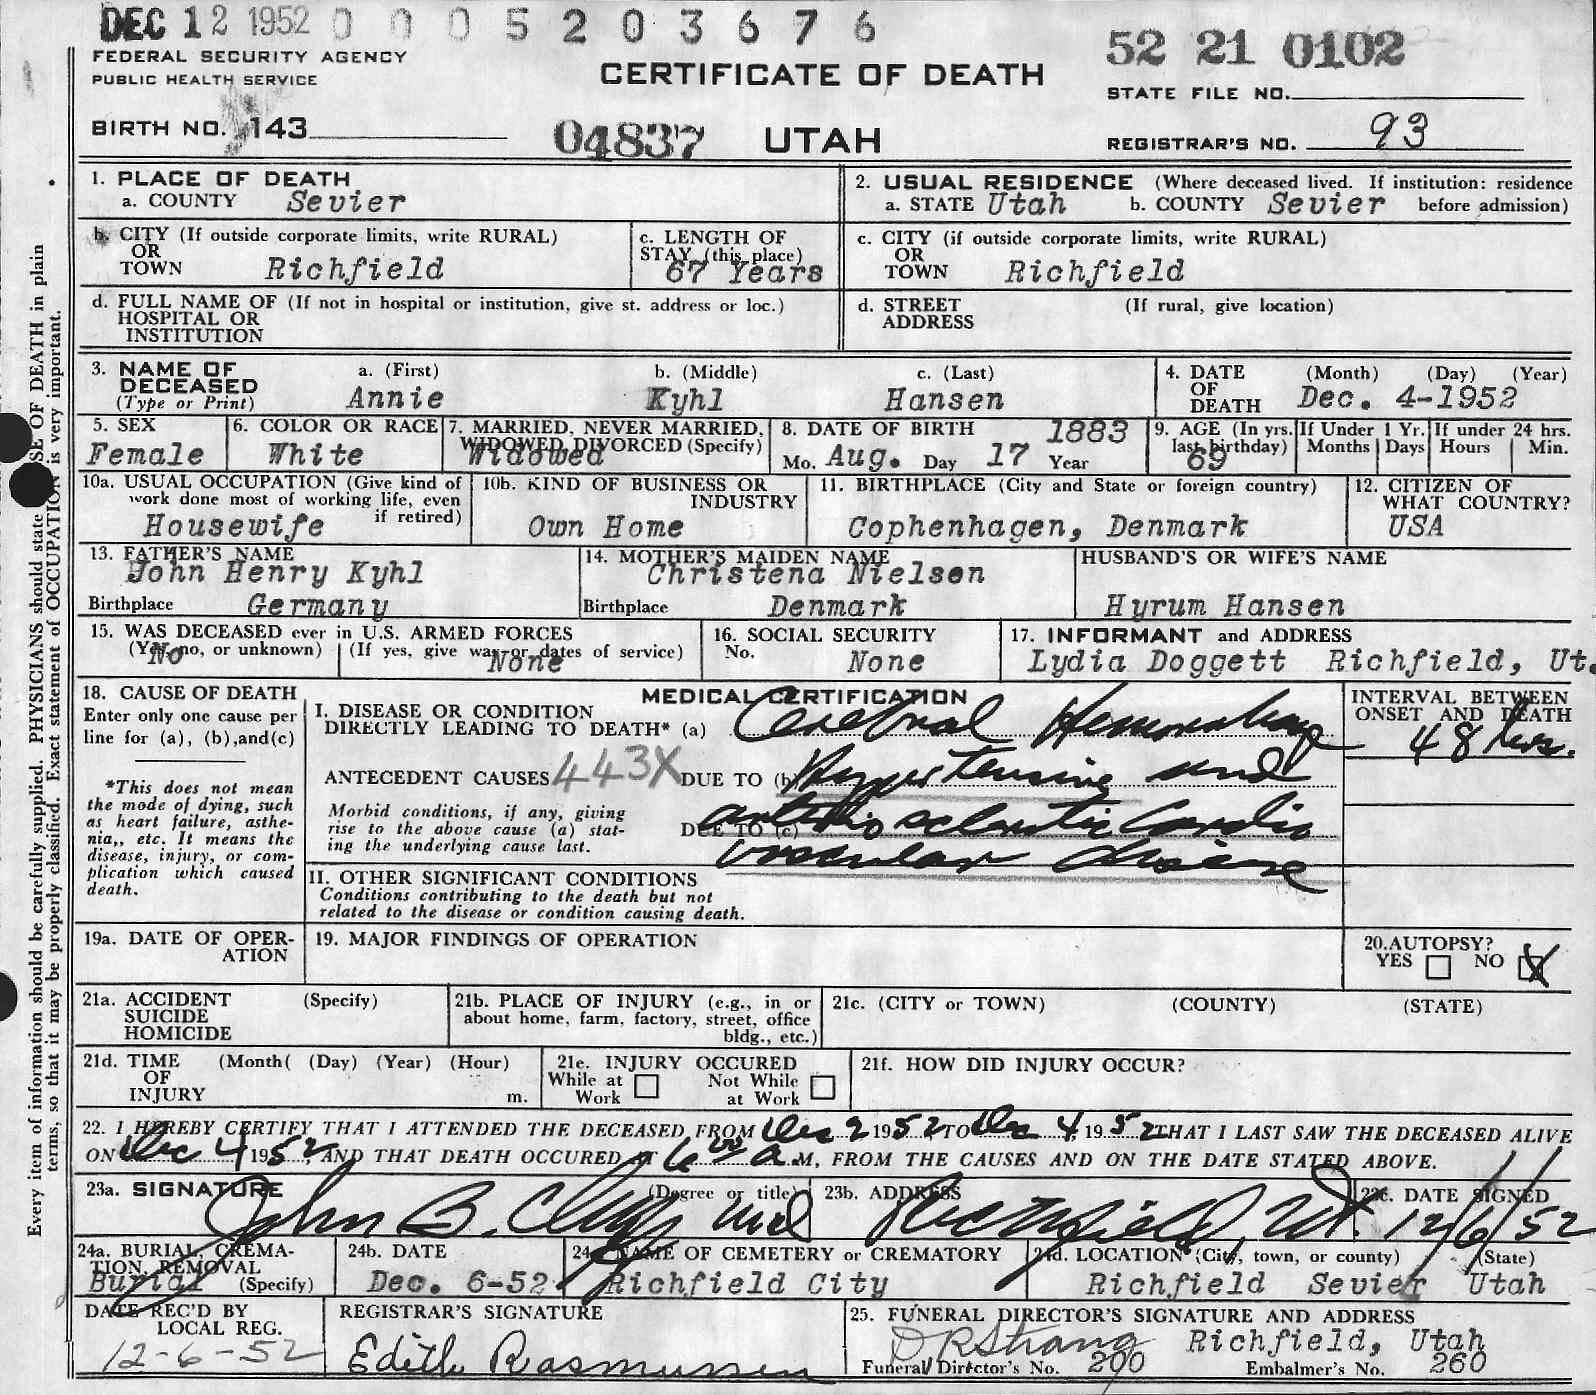 DEC 12 1952 0 0 0 5 2 0 3 6 7 6
52 21 0102
FEDERAL SECURITY AGENCY
PUBLIC HEALTH SERVICE
CERTIFICATE OF DEATH
STATE FILE NO.
BIRTH NO. 143
04837 UTAH
REGISTRAR'S NO. 93
1. PLACE OF DEATH
a. COUNTY Sevier
2. USUAL RESIDENCE (Where deceased lived. If institution: residence
a. STATE Utah b. COUNTY Sevier before admission)
b. CITY (If outside corporate limits, write RURAL)
OR
TOWN Richfield
c. LENGTH OF
STAY (this place)
67 Years
c. CITY (if outside corporate limits, write RURAL)
OR
TOWN Richfield
d. FULL NAME OF (If not in hospital or institution, give st. address or loc.)
HOSPITAL OR
INSTITUTION
d. STREET (If rural, give location)
ADDRESS
3. NAME OF
DECEASED
(Type or Print)
a. (First) b. (Middle) c. (Last)
Annie Kyhl Hansen
4. DATE (Month) (Day) (Year)
OF
DEATH Dec. 4-1952
5. SEX
Female
6. COLOR OR RACE
White
7. MARRIED, NEVER MARRIED,
WIDOWED, DIVORCED (Specify)
Widowed
8. DATE OF BIRTH 1883
Mo. Aug. Day 17 Year
9. AGE (In yrs.
last birthday)
69
If Under 1 Yr.
Months Days
If under 24 hrs.
Hours Min.
10a. USUAL OCCUPATION (Give kind of
work done most of working life, even
if retired)
Housewife
10b. KIND OF BUSINESS OR
INDUSTRY
Own Home
11. BIRTHPLACE (City and State or foreign country)
Cophenhagen, Denmark
12. CITIZEN OF
WHAT COUNTRY?
USA
13. FATHER'S NAME
John Henry Kyhl
Birthplace Germany
14. MOTHER'S MAIDEN NAME
Christena Nielsen
Birthplace Denmark
HUSBAND'S OR WIFE'S NAME
Hyrum Hansen
15. WAS DECEASED ever in U.S. ARMED FORCES
(Yes, no, or unknown) (If yes, give war or dates of service)
No None
16. SOCIAL SECURITY
No. None
17. INFORMANT and ADDRESS
Lydia Doggett Richfield, Ut.
18. CAUSE OF DEATH
Enter only one cause per
line for (a), (b),and(c)
*This does not mean
the mode of dying, such
as heart failure, asthe-
nia,, etc. It means the
disease, injury, or com-
plication which caused
death.
MEDICAL CERTIFICATION
I. DISEASE OR CONDITION
DIRECTLY LEADING TO DEATH* (a) Cerebral Hemorrhage
ANTECEDENT CAUSES 443X DUE TO (b) Hypertensive and
Morbid conditions, if any, giving
rise to the above cause (a) stat-
ing the underlying cause last.
DUE TO (c) arteriosclerotic Cardio
vascular disease
INTERVAL BETWEEN
ONSET AND DEATH
48 hrs.
II. OTHER SIGNIFICANT CONDITIONS
Conditions contributing to the death but not
related to the disease or condition causing death.
19a. DATE OF OPER-
ATION
19. MAJOR FINDINGS OF OPERATION
20. AUTOPSY?
YES NO X
21a. ACCIDENT (Specify)
SUICIDE
HOMICIDE
21b. PLACE OF INJURY (e.g., in or
about home, farm, factory, street, office
bldg., etc.)
21c. (CITY or TOWN) (COUNTY) (STATE)
21d. TIME (Month( (Day) (Year) (Hour)
OF
INJURY m.
21e. INJURY OCCURED
While at Work Not While at Work
21f. HOW DID INJURY OCCUR?
22. I HEREBY CERTIFY THAT I ATTENDED THE DECEASED FROM Dec 2 1952 TO Dec 4, 1952 THAT I LAST SAW THE DECEASED ALIVE
ON Dec 4 1952, AND THAT DEATH OCCURED AT 6 00 a.M, FROM THE CAUSES AND ON THE DATE STATED ABOVE.
23a. SIGNATURE (Degree or title)
John B. Md
23b. ADDRESS
Richfield, Ut.
23c. DATE SIGNED
12/6/52
24a. BURIAL, CREMA-
TION, REMOVAL
Burial (Specify)
24b. DATE
Dec. 6-52
24c. NAME OF CEMETERY or CREMATORY
Richfield City
24d. LOCATION (City, town, or county) (State)
Richfield Sevier Utah
DATE REC'D BY
LOCAL REG.
12-6-52
REGISTRAR'S SIGNATURE
Edith Rasmussen
25. FUNERAL DIRECTOR'S SIGNATURE AND ADDRESS
Strang Richfield, Utah
Funeral Director's No. 200 Embalmer's No. 260
Every item of information should be carefully supplied. PHYSICIANS should state CAUSE OF DEATH in plain
terms, so that it may be properly classified. Exact statement of OCCUPATION is very important.